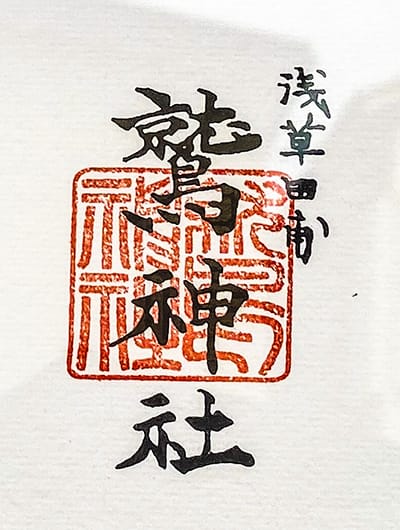 浅草田甫
鷲神社